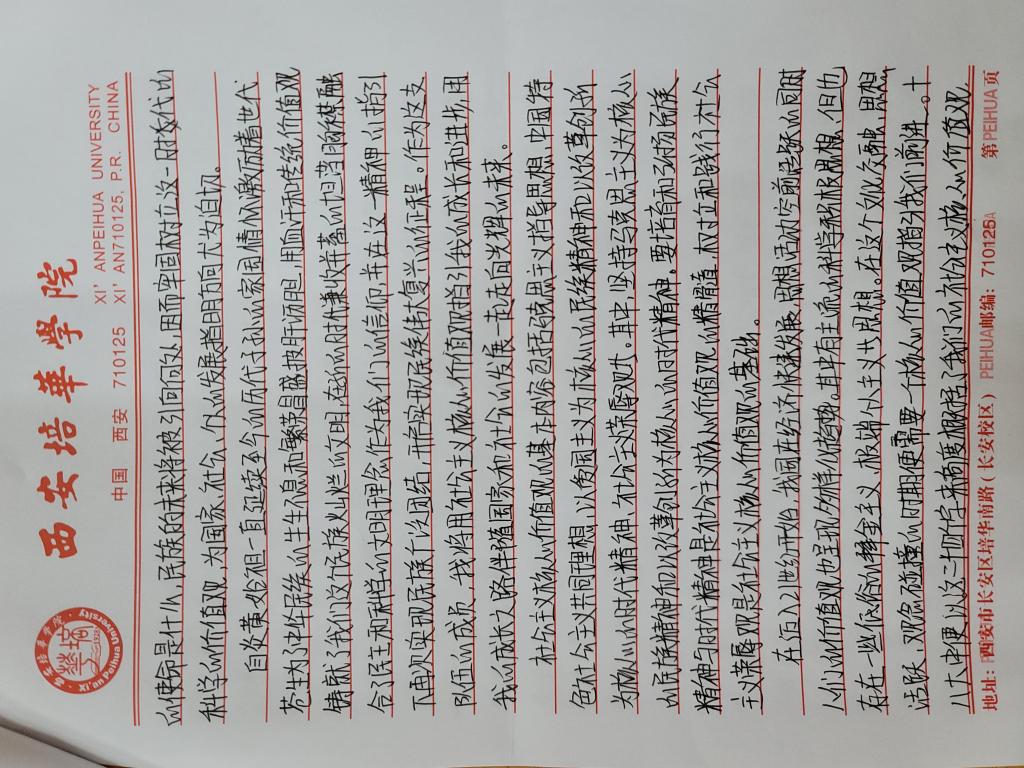 西安培華學院
XI' ANPEIHUA UNIVERSITY
中国 西安 710125 XI' AN710125, P.R. CHINA
西安培华学院
Xi'an Peihua University
1928
的使命是什么,民族的未来将被引向何处,因而牢固树立这一时代的
科学的价值观,为国家、社会、个人的发展指明方向尤为迫切。
自炎黄始祖一直延续至今的历代子孙的家国情的激励着世代
苍生为了中华民族的生生不息和繁荣昌盛披肝沥胆,用血汗和传统价值观
铸就了我们这个民族灿烂的文明,在新的时代兼收并蓄的坦荡胸襟融
合民主和科学的文明理念作为我们的信仰,并在这一精神的指引
下再次实现民族的大团结,开启实现民族伟大复兴的征程。作为这支
队伍的成员,我将用社会主义核心价值观指引我的成长和进步,用
我的成长之路伴随国家和社会的发展一起走向光辉的未来。
社会主义核心价值观的基本内容包括马克思主义指导思想,中国特
色社会主义共同理想,以爱国主义为核心的民族精神和以改革创新
为核心的时代精神,社会主义荣辱观。其中,坚持马克思主义为核心
的民族精神和以改革创新为核心的时代精神。要培育和弘扬民族
精神与时代精神是社会主义核心价值观的精髓,树立和践行社会
主义荣辱观是社会主义核心价值观的基础。
在迈入21世纪开始,我国在经济快速发展,思想活跃空前活跃的同时
人们的价值观也呈现多样化趋势。其中有主流的科学积极思想,但也
存在一些低俗的拜金主义,极端个人主义的思想。在这个文化交融,思想
活跃,观念碰撞的时期便需要一个核心价值观指引我们前进。十
八大中便以这三个方面高度概括了我们的社会主义核心价值观
地址:西安市长安区培华南路(长安校区) PEIHUA邮编:710125 第PEIHUA页